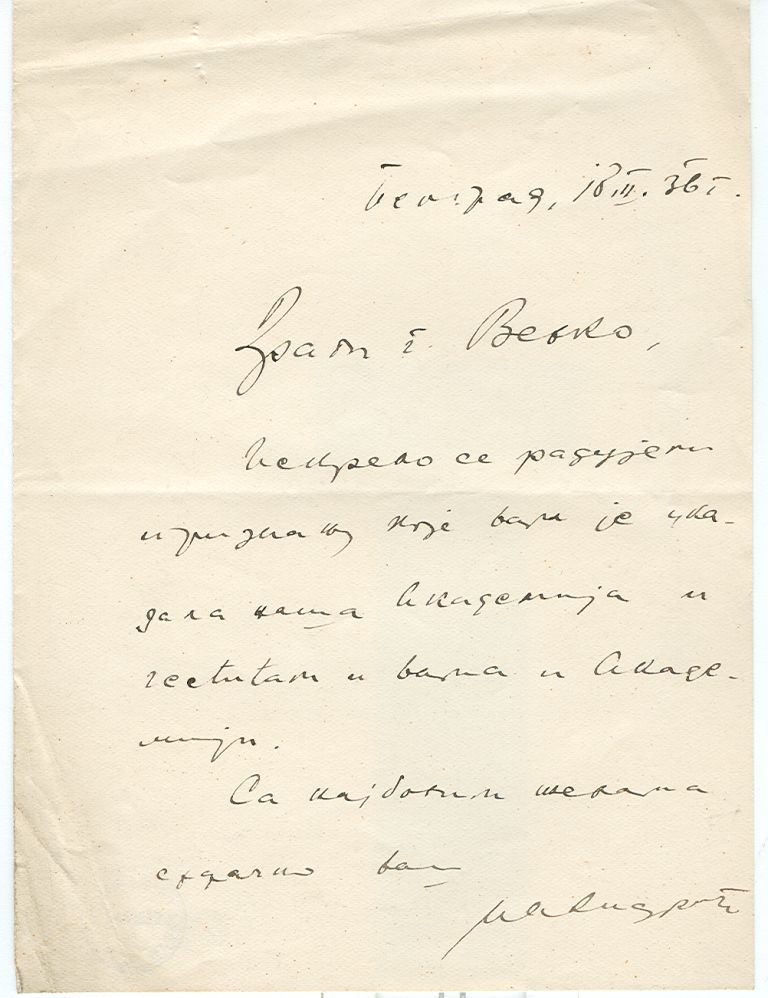 Београд, 18 III. 36 г.
Драги г. Вељко,
Искрено се радујем
признању које вам је ука-
зала наша Академија и
честитам и вама и Акаде-
мији.
Са најбољим жељама
срдачно ваш
Иво Андрић